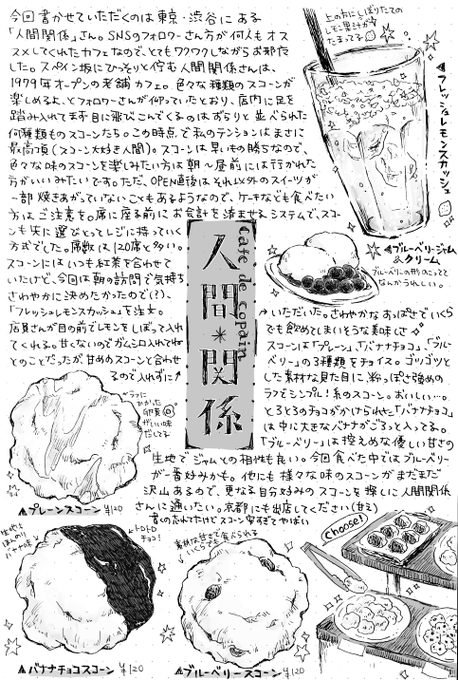 今回書かせていただくのは東京・渋谷にある
「人間関係」さん。SNSのフォロワーさん方が何人もオス
スメしてくれたカフェなので、とてもワクワクしながらお邪魔
した。スペイン坂にひっそりと佇む人間関係さんは、
1979年オープンの老舗カフェ。色々な種類のスコーンが
楽しめるよ、とフォロワーさんが仰っていたとおり、店内に足を
踏み入れて五不目に飛びこんでくるのはずらりと並べられた
何種類ものスコーンたち。この時点で私のテンションはまさに
最高頂(スコーン大好き人間)。スコーンは早いもの勝ちなので、
色々な味のスコーンを楽しみたい方は朝〜昼前には行かれた
方がいいみたいです。ただ、OPEN直後はそれ以外のスイーツが
一部焼きあがっていないこともあるようなので、ケーキなども食べたい
方はご注意を。席に座る前にお会計を済ませるシステムで、スコー
ンも先に選びとってレジに持っていく
方式でした。席数は120席と多い。
スコーンにはいつも紅茶を合わせて
いたけど、今回は朝の訪問で気持ち
さわやかに決めたかったので(?)、
「フレッシュレモンスカッシュ」を注文。
店員さんが目の前でレモンをしぼって入れ
てくれる。甘くないのでガムシロ入れてね
とのことだったが、甘めのスコーンと合わせ
るので入れずに
いただいた。さわやかなすっぱさでいくら
でも飲めてしまいそうな美味しさ
スコーンは「プレーン」、「バナナチョコ」、「ブルー
ベリー」の3種類をチョイス。ゴツゴツと
した素朴な見た目に粉っぽさ強めの
ラフでシンプル!系のスコーン。おいしい…。
とろとろのチョコがかけられた「バナナチョコ」
は中に大きなバナナがごろっと入ってる。
「ブルーベリー」は控えめな優しい甘さの
生地でジャムとの相性も良い。今回食べた中ではブルーベリー
が一番好みかも。他にも様々な味のスコーンがまだまだ
沢山あるので、更なる自分好みのスコーンを探しに人間関係
さんに通いたい。京都にも出店してください(甘え)
書き忘れてたけどスコーン安すぎてやばい
上の方にしぼりたての
レモン果汁が
たまってる
フレッシュレモンスカッシュ
ブルーベリージャム
&クリーム
ブルーベリーの形のこってて
なんかうれしい。
Cafe de Copain
人間*関係
プレーンスコーン ¥120
トロトロ
チョコ!
バナナチョコスコーン ¥120
ブルーベリースコーン ¥120
Choose!